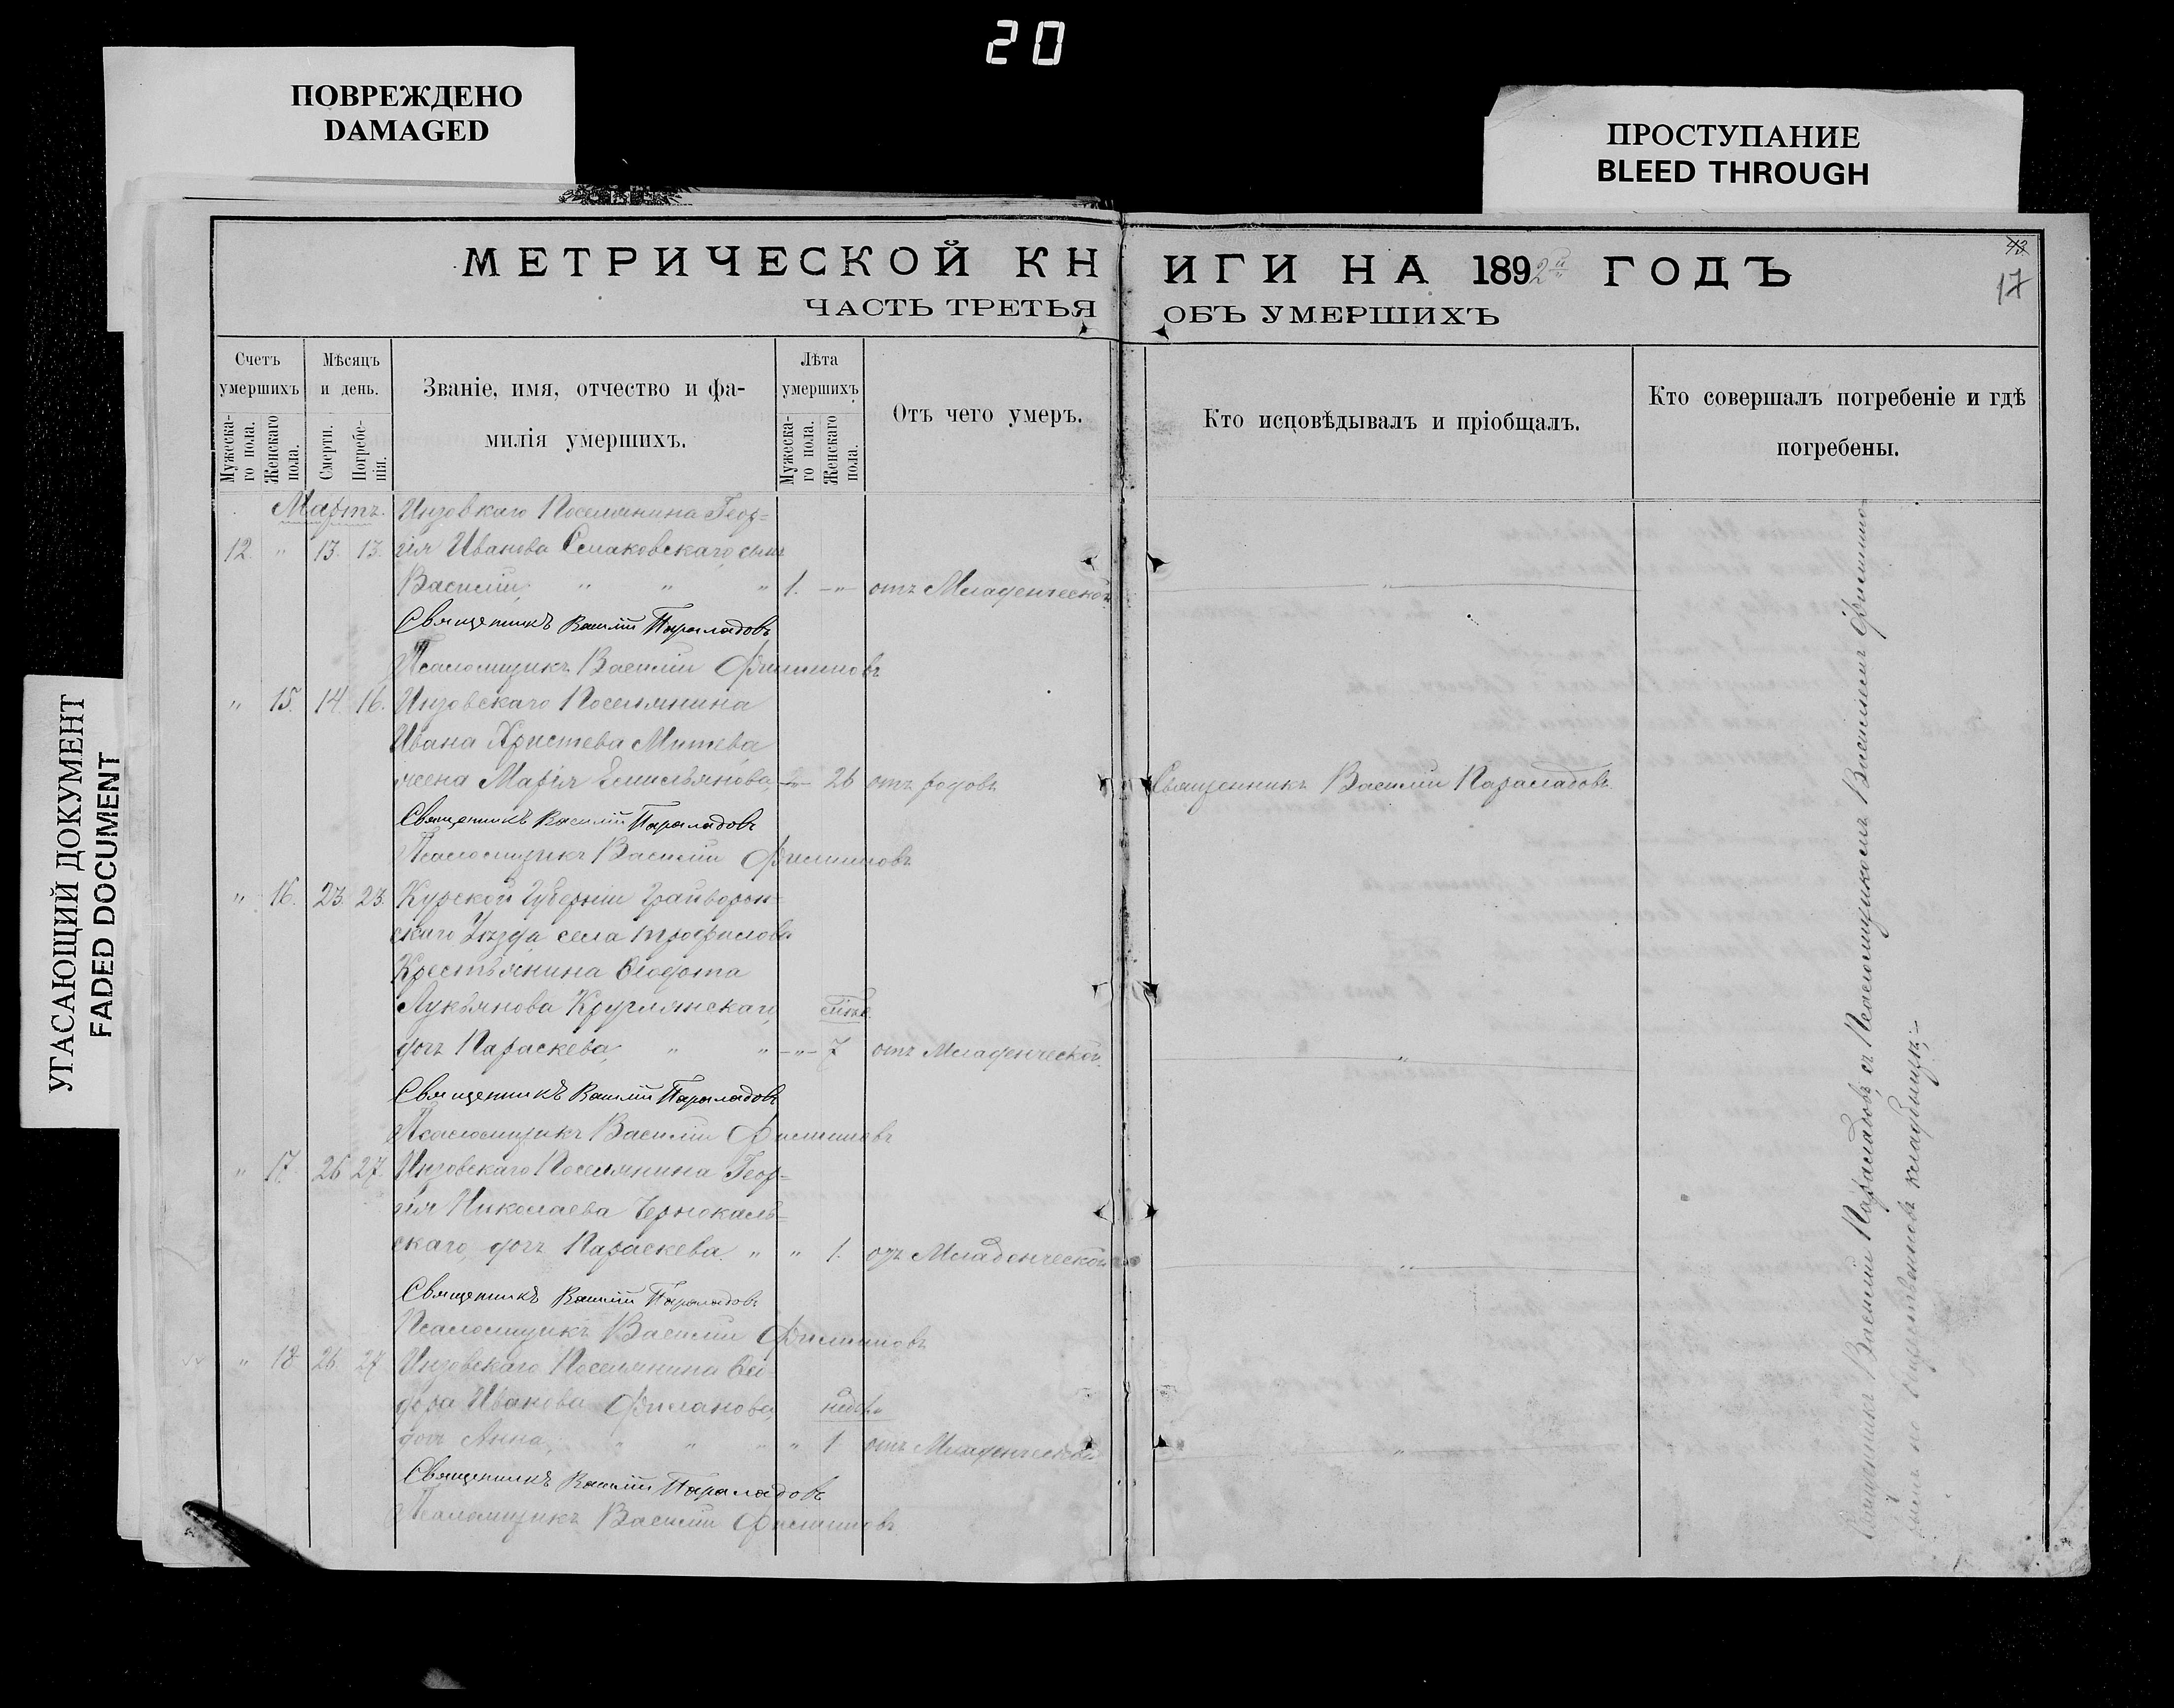 20
ПОВРЕЖДЕНО
DAMAGED
ПРОСТУПАНИЕ
BLEED THROUGH
УГАСАЮЩИЙ ДОКУМЕНТ
FADED DOCUMENT
МЕТРИЧЕСКОЙ КНИГИ НА 1892й ГОДЪ
ЧАСТЬ ТРЕТЬЯ ОБЪ УМЕРШИХЪ
43
17
Счетъ умершихъ
Мужеска-го пола.
Женскаго пола.
Мѣсяцъ и день.
Смерти.
Погребе-нія.
Званіе, имя, отчество и фа-
милія умершихъ.
Лѣта умершихъ
Мужеска-го пола.
Женскаго пола.
Отъ чего умеръ.
Кто исповѣдывалъ и пріобщалъ.
Кто совершалъ погребеніе и гдѣ
погребены.
Мартъ. Инзовкаго Поселянина Геор=
12 " 13. 13. гія Иванова сынъ
Василій " " " 1. -"- отъ Младенческой
Священникъ Василій Парамадовъ
Псаломщикъ Василій Филипповъ
" 15. 14. 16. Инзовскаго Поселянина
Ивана Христева Митева
жена Марія Емильянова, -"- 26 отъ родовъ Священникъ Василій Парамадовъ.
Священникъ Василій Парамадовъ
Псаломщикъ Василій Филипповъ
" 16. 23. 23. Курской Губерніи Грайворон=
скаго Уѣзда села
Крестьянина Ѳеодота
Лукьянова Круглянскаго,
дочь Параскева, " " -"- 7 отъ Младенческой.
Священникъ Василій Парамадовъ
Псаломщикъ Василій Филипповъ
" 17. 26 27. Инзовскаго Поселянина Геор=
гія Николаева
скаго, дочь Параскева. " " 1. отъ Младенческой
Священникъ Василій Парамадовъ
Псаломщикъ Василій Филипповъ
" 18 26. 27 Инзовскаго Поселянина
дора Иванова недѣль
дочь Анна, " " " " 1 отъ Младенческой
Священникъ Василій Парамадовъ
Псаломщикъ Василій Филипповъ
Священникъ Василій Парамадовъ, съ Псаломщикомъ Василіемъ Филиппо-
вымъ на кладбищѣ;-